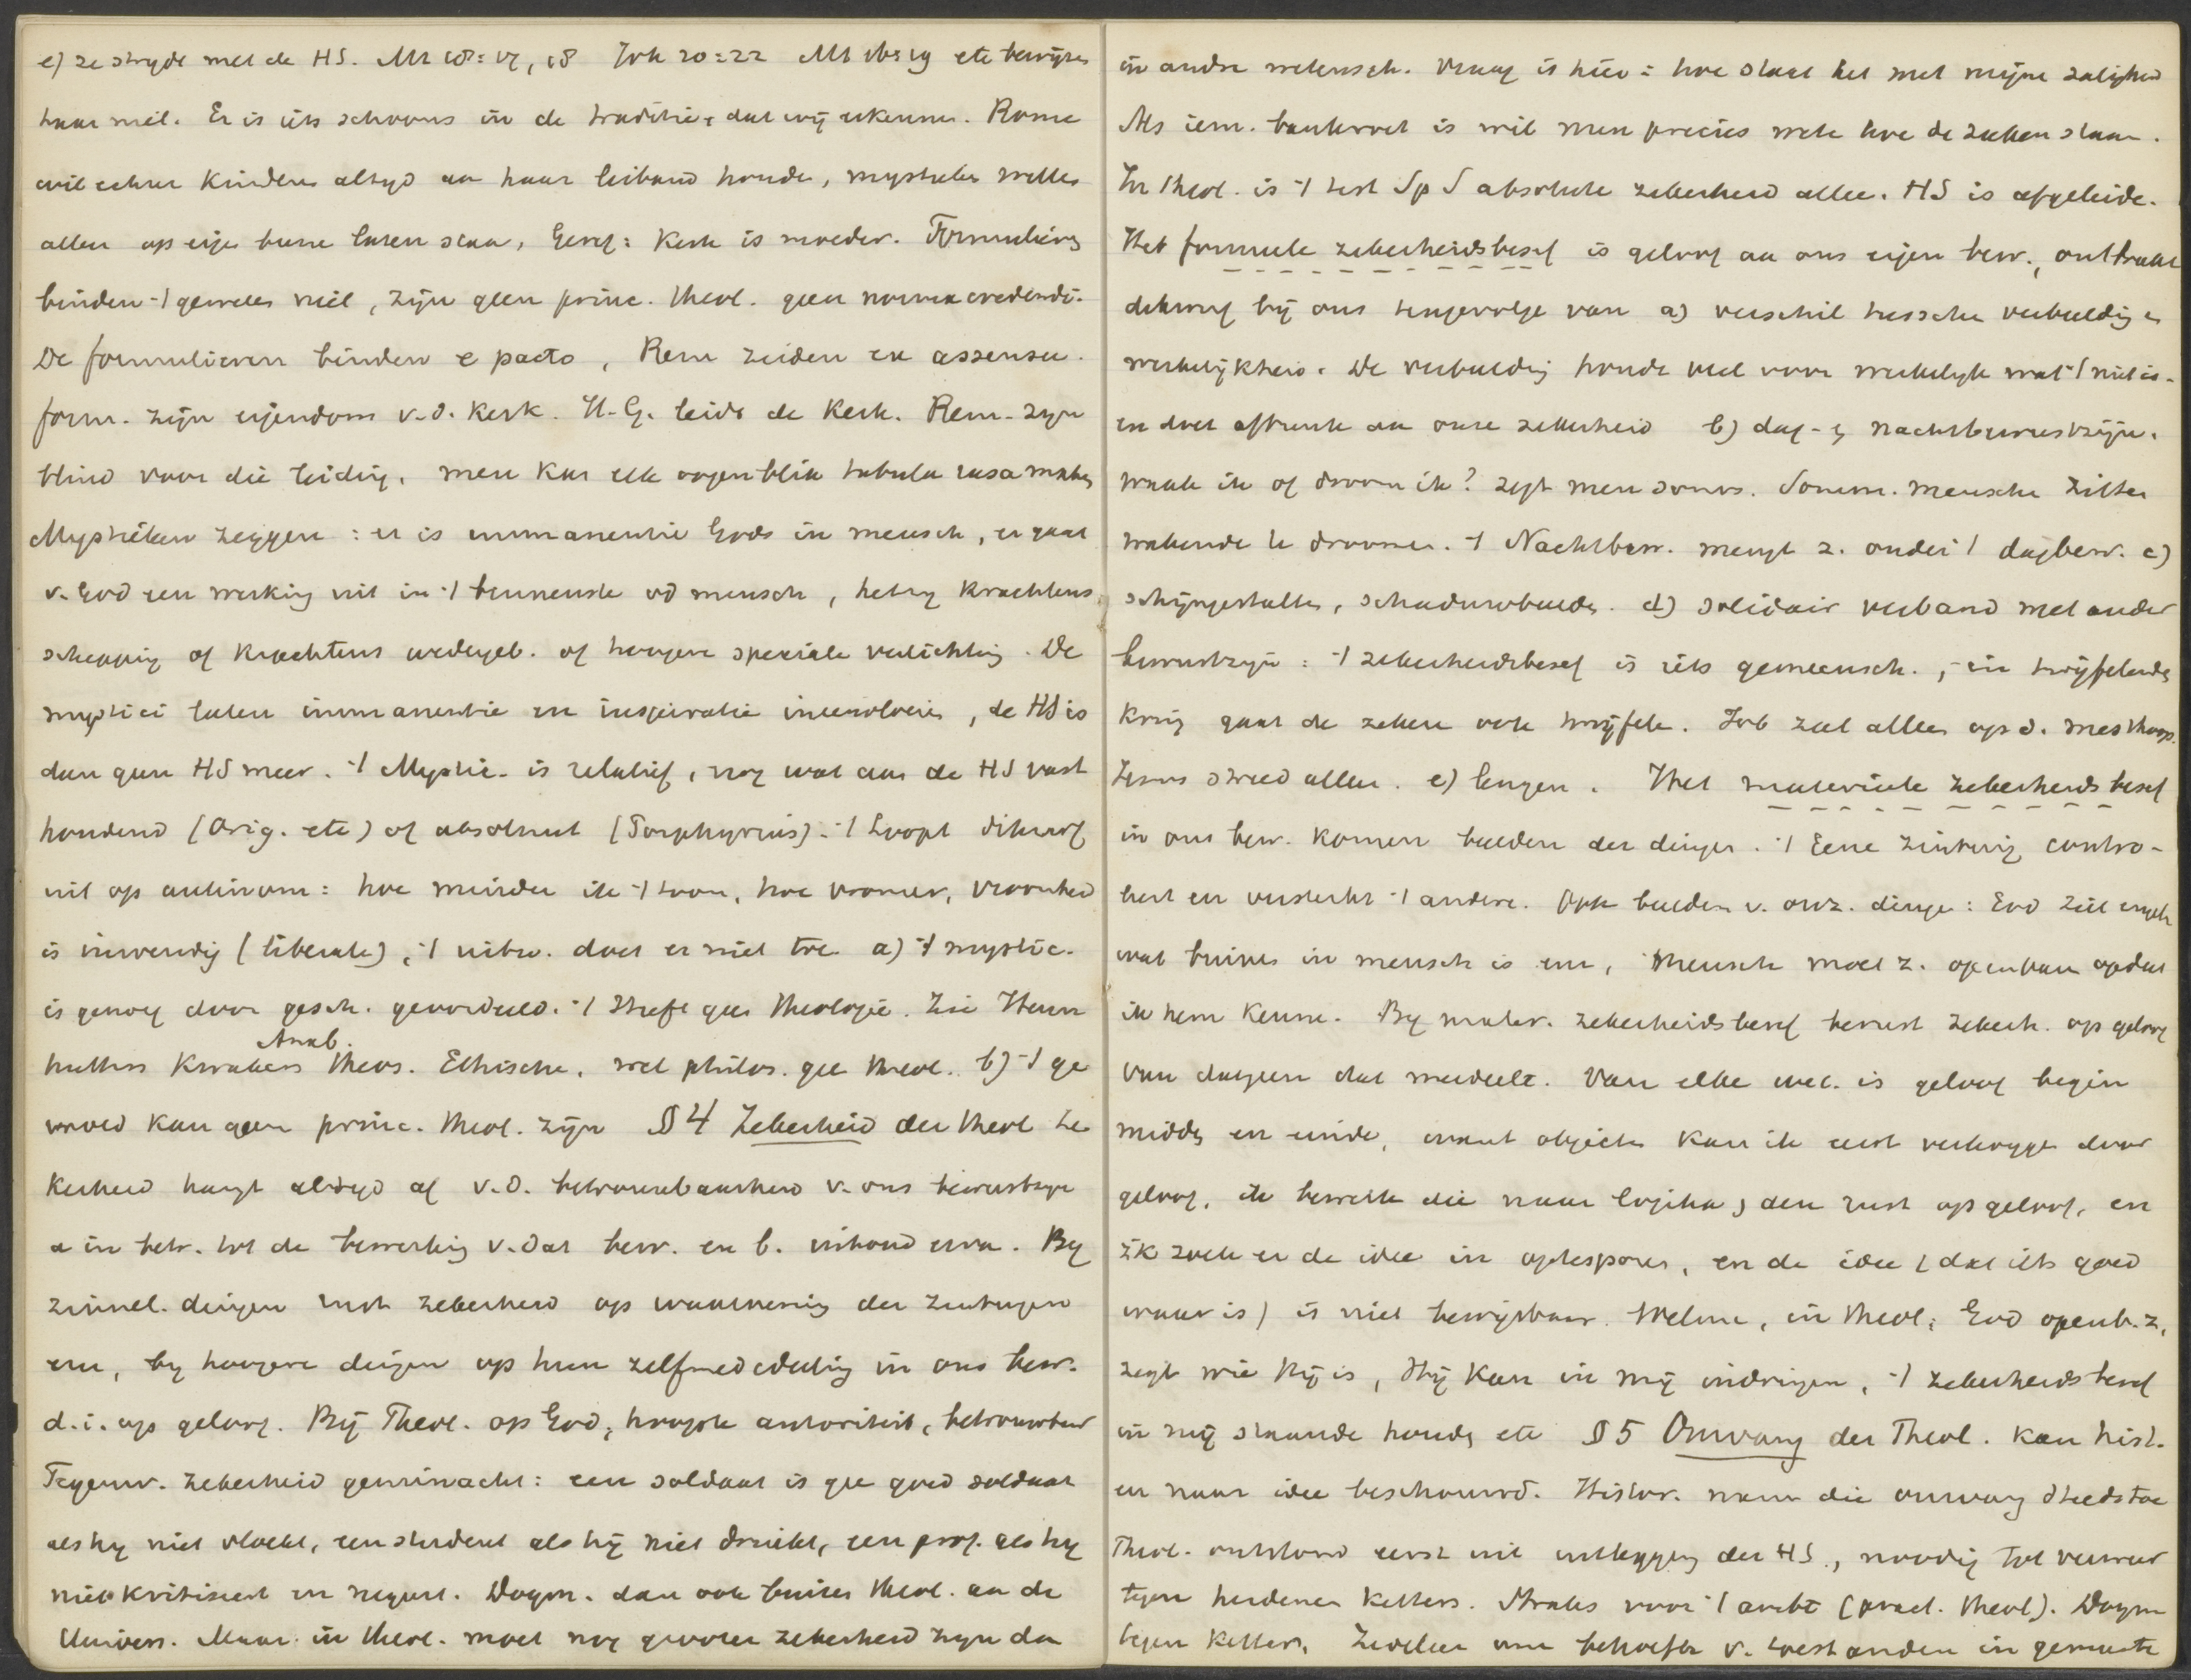 e) ze strydt met de HS. Mt 28:19, 18 Joh 20:22 etc bewijzen
haar niet. Er is iets schoons in de traditie, dat wij erkennen. Rome
wil echter kinderen altyd aan haar leiband houden, mystieken willen
allen op eigen beene laten staan, Geref: Kerk is moeder. Formulieren
binden -| geweten niet, zijn geen princ. theol. geen norma credendi.
De formulieren binden e pacto, Rem zeiden ex assensu.
form. zijn eigendom v.d. Kerk. H.G. leidt de Kerk. Rem. zyn
blind voor die leiding, men kan elk oogenblik tabula rasa maken
Mystieken zeggen: er is immanentie Gods in mensch, er gaat
v. God een werking uit in -| binnenste vd mensch, hetzy krachtens
schepping of krachtens wedergeb. of hoogere speciale verlichting. De
mystici laten immanentie en inspiratie ineenvloeien, de HS is
dan geen HS meer. -| Mystic. is relatief, nog wat aan de HS vast
houdend (Orig. etc) of absoluut (Porphyrius). -| Loopt dikwerf
uit op antinom: hoe minder ik -| toon, hoe vromer, vroomheid
is inwendig (liberale), -| uitw. doet er niet toe a) -| mystic.
is genoeg door gesch. geoordeeld. -| Heeft gee theologie. Zie Hern
hutters Kwakers Anab. theos. Ethische, wel philos. gee theol. b) -| ge
moed kan geen princ. theol. zijn § 4 Zekerheid der theol Ze
kerheid hangt altyd af v.d. betrouwbaarheid v. ons bewustzyn
a in betr. tot de bewerking v. dat bew. en b. inhoud erva. By
zinnel. dingen rust zekerheid op waarneming der zintuigen
en, by hoogere dingen op hun zelfmededeeling in ons bew.
d.i. op geloof. Bij Theol. op God, hoogste autoriteit, betrouwbaar
Tegenw. zekerheid geminacht: een soldaat is gee goed soldaat
als hy niet vloekt, een student als hij niet drinkt, een prof. als hy
niet kritiseert en negeert. Dogm. dan ook buiten theol. aa de
Univers. Maar in theol. moet nog grooter zekerheid zyn da
in andre wetensch. Vraag is hier: hoe staat het met mijne zaligheid
Als iem. bankroet is wil men precies wete hoe de zaken staan.
In theol. is -| test Sp S absolute zekerheid allee. HS is afgeleide.
Het formeele zekerheidsbesef is geloof aa ons eigen bew.,
dikwerf bij ons tengevolge van a) verschil tussche verbeelding e
werkelijkheid. De verbeelding houdt veel voor werkelyk wat -| niet is.
en doet afbreuk aa onze zekerheid b) dag- en nachtbewustzijn.
waak ik of droom ik? zegt men soms. Somm. mensche zitten
wakende te droomen. -| Nachtbew. mengt z. onder -| dagbew. c)
schijngestalten, schaduwbeelde. d) solidair verband met ander
bewustzijn: -| zekerheidsbesef is iets gemeensch., in twijfelende
kring gaat de zekere ook twijfele. Job zat alleen op d. mesthoop.
Jezus streed alleen. e) leugen. Het materieele zekerheidsbesef
in ons bew. komen beelden der dingen. -| Eene zintuig contro-
leert en versterkt -| andere. Ook beelden v. onz. dinge: God ziet
wat binnen in mensch is en, mensch moet z. openbaren opdat
ik hem kenne. By mater. zekerheidsbesef berust zekerh. op geloof
van datgeen dat meedeelt. Van elke wet. is geloof begin
midde en einde, want objecte kan ik eerst verkrygen door
geloof, ik bewerk die naar logika, den rust op geloof, en
ik zoek er de idee in optesporen, en de idee (dat iets goed
waar is) is niet bewijsbaar. Welnu, in theol: God openb. z,
zegt wie Hij is, Hij kan in mij indringen, -| zekerheidsbesef
in mij staande houde etc § 5 Omvang der Theol. kan hist.
en naar idee beschouwd. Histor. nam die omvang steeds toe
Theol. ontstond eerst uit uitlegging der HS, noodig tot verweer
tegen heidenen ketters. Straks voor -| ambt (pract. theol). Dogm
tegen ketters, Zedeleer om behoefte v. toestanden in gemeente